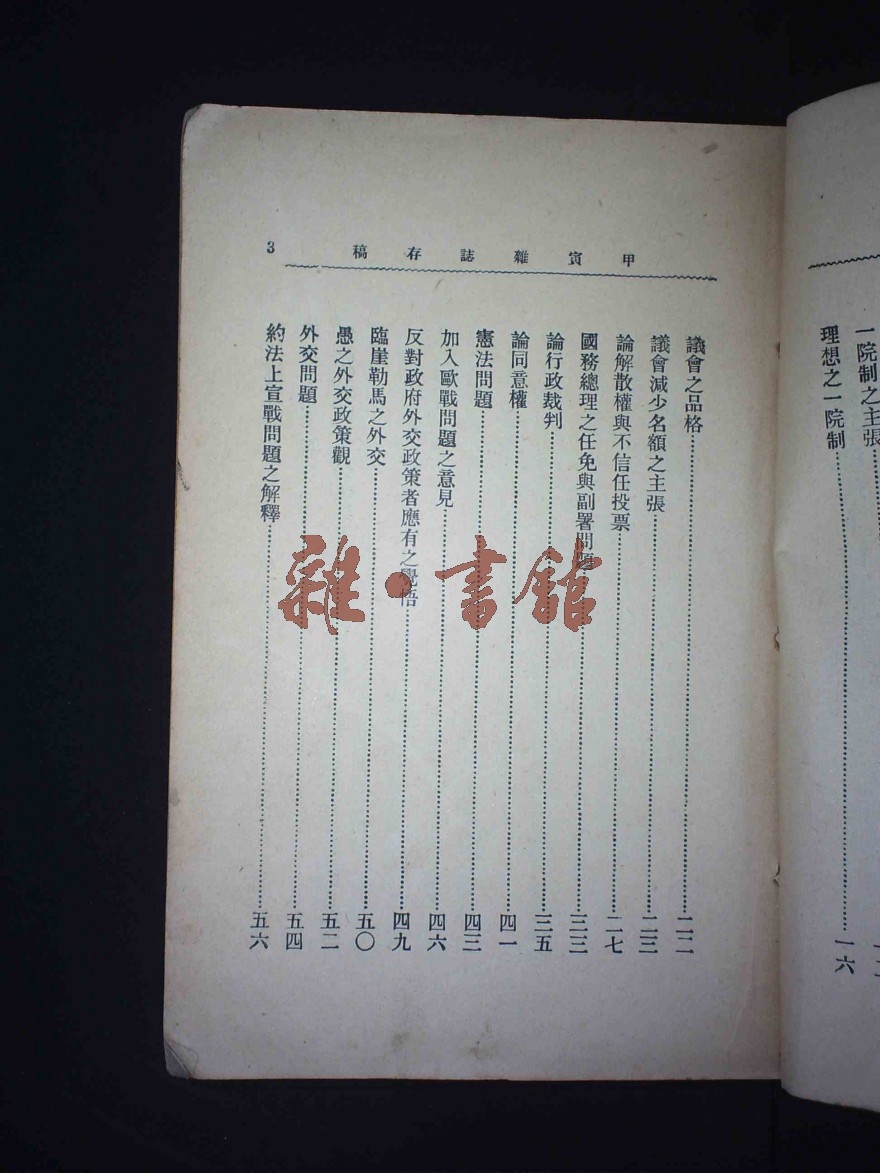 一院制之主張
理想之一院制……一六
甲寅雜誌存稿
3
議會之品格……二二
議會減少名額之主張……二三
論解散權與不信任投票……二七
國務總理之任免與副署問題……三三
論行政裁判……三五
論同意權……四一
憲法問題……四三
加入歐戰問題之意見……四六
反對政府外交政策者應有之覺悟……四九
臨崖勒馬之外交……五〇
愚之外交政策觀……五二
外交問題……五四
約法上宣戰問題之解釋……五六
雜·書館